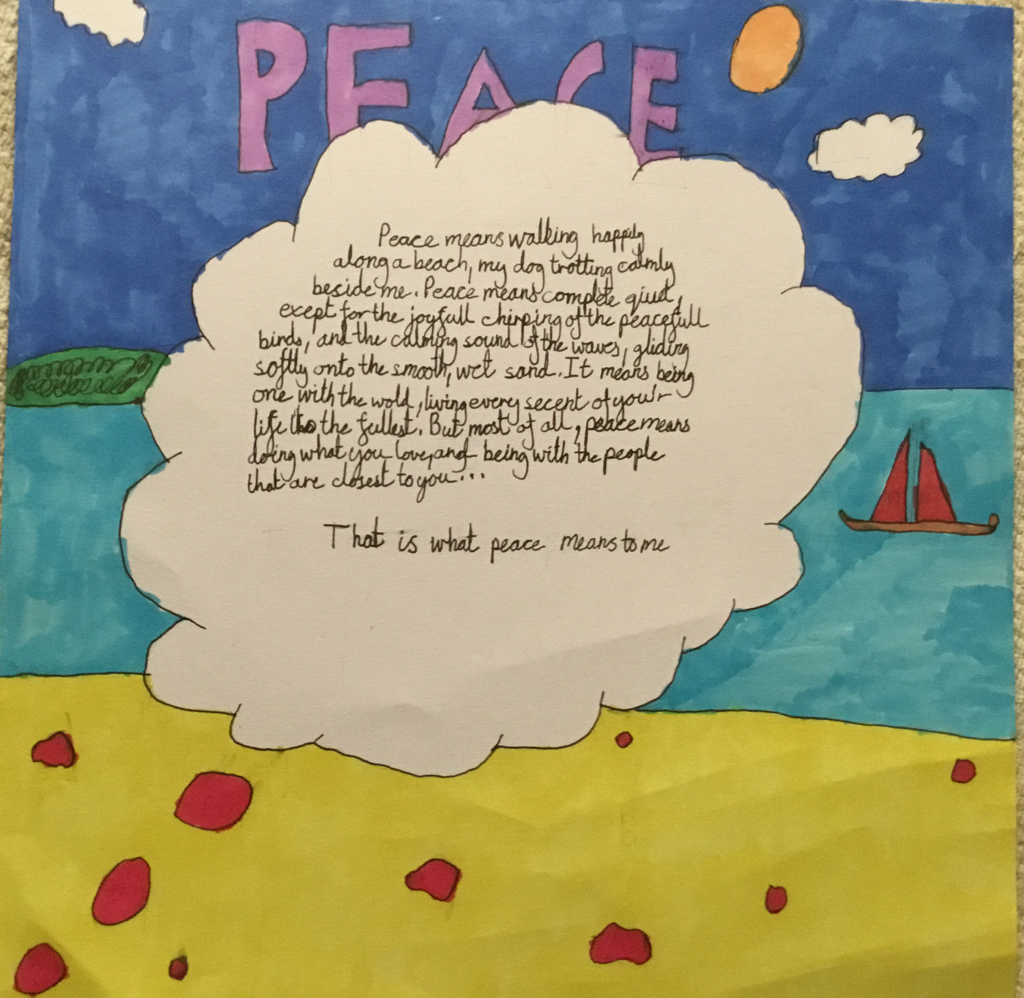 PEACE
Peace means walking happily
along a beach, my dog trotting calmly
beside me. Peace means complete qiuet,
exept for the joyfull chirping of the peacefull
birds, and the calming sound of the waves, gliding
softly onto the smooth, wet sand. It means being
one with the wold, living every secent of you'r
life to the fullest. But most of all, peace means
doing what you love, and being with the people
that are closest to you...
That is what peace means to me